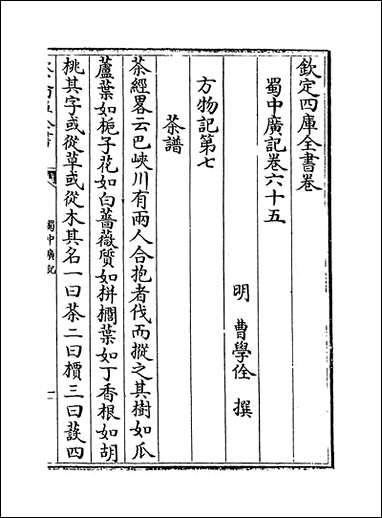 欽定四庫全書卷
蜀中廣記卷六十五
明 曹學佺 撰
方物記第七
茶譜
茶經畧云巴峽川有兩人合抱者伐而掇之其樹如瓜
蘆葉如梔子花如白薔薇質如栟櫚葉如丁香根如胡
桃其字或從草或從木其名一曰茶二曰檟三曰蔎四
蜀中廣記